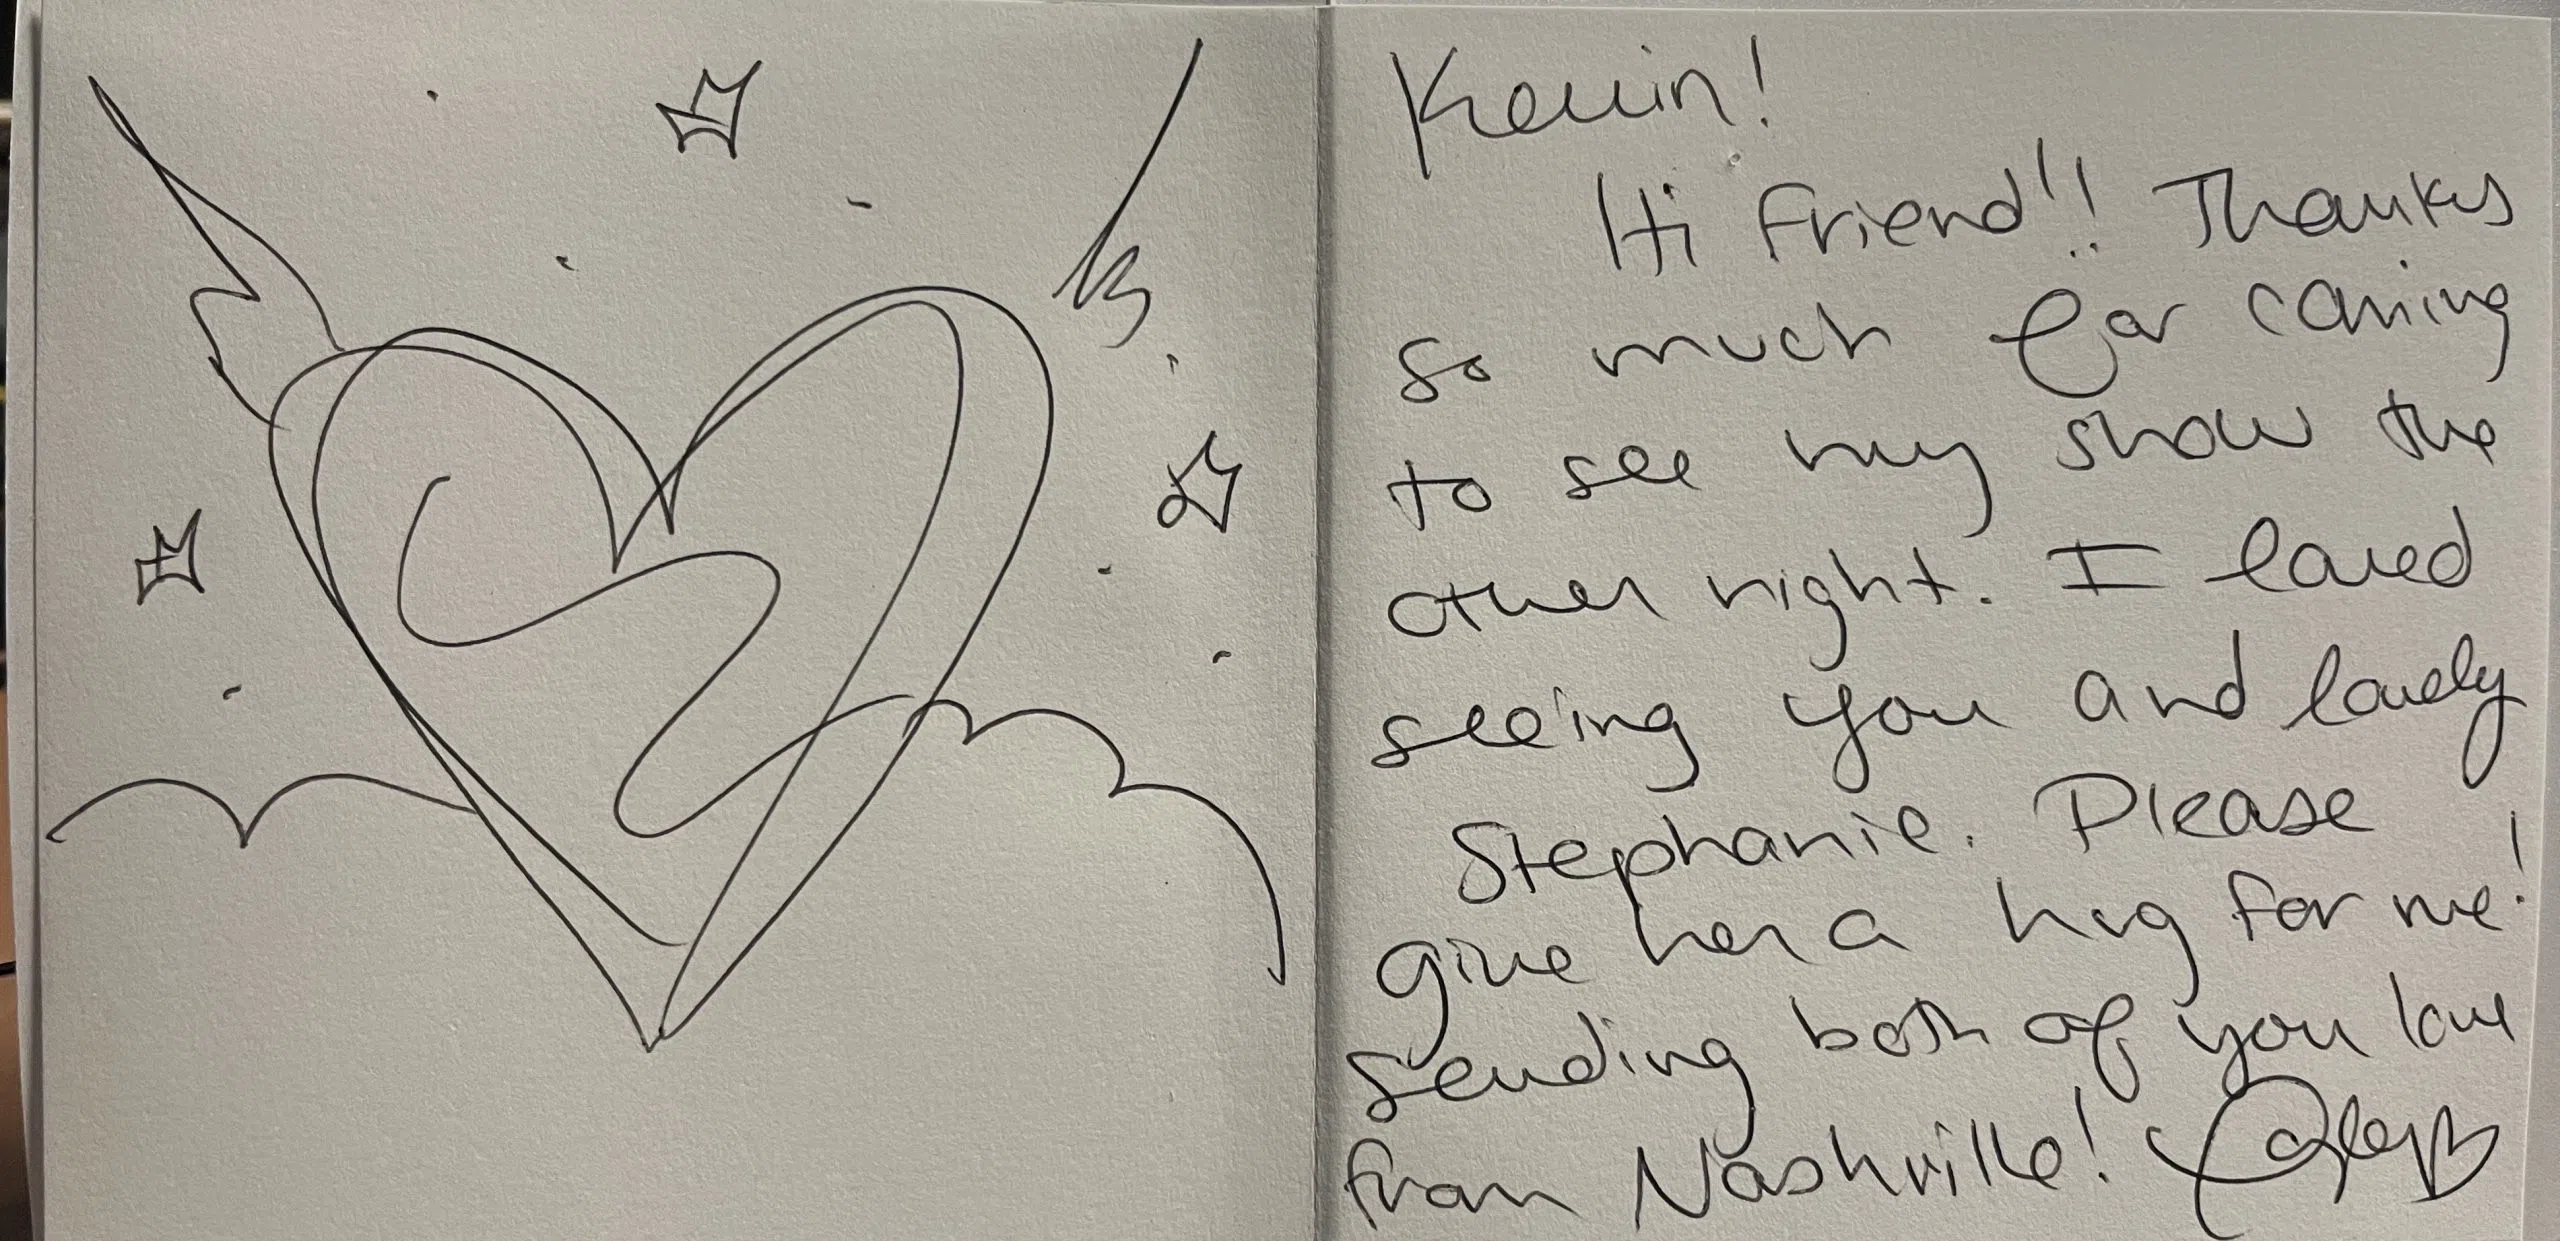 Kevin!
Hi friend!! Thanks
so much for coming
to see my show the
other night. I loved
seeing you and lovely
Stephanie. Please
give her a hug for me!
Sending both of you love
from Nashville!